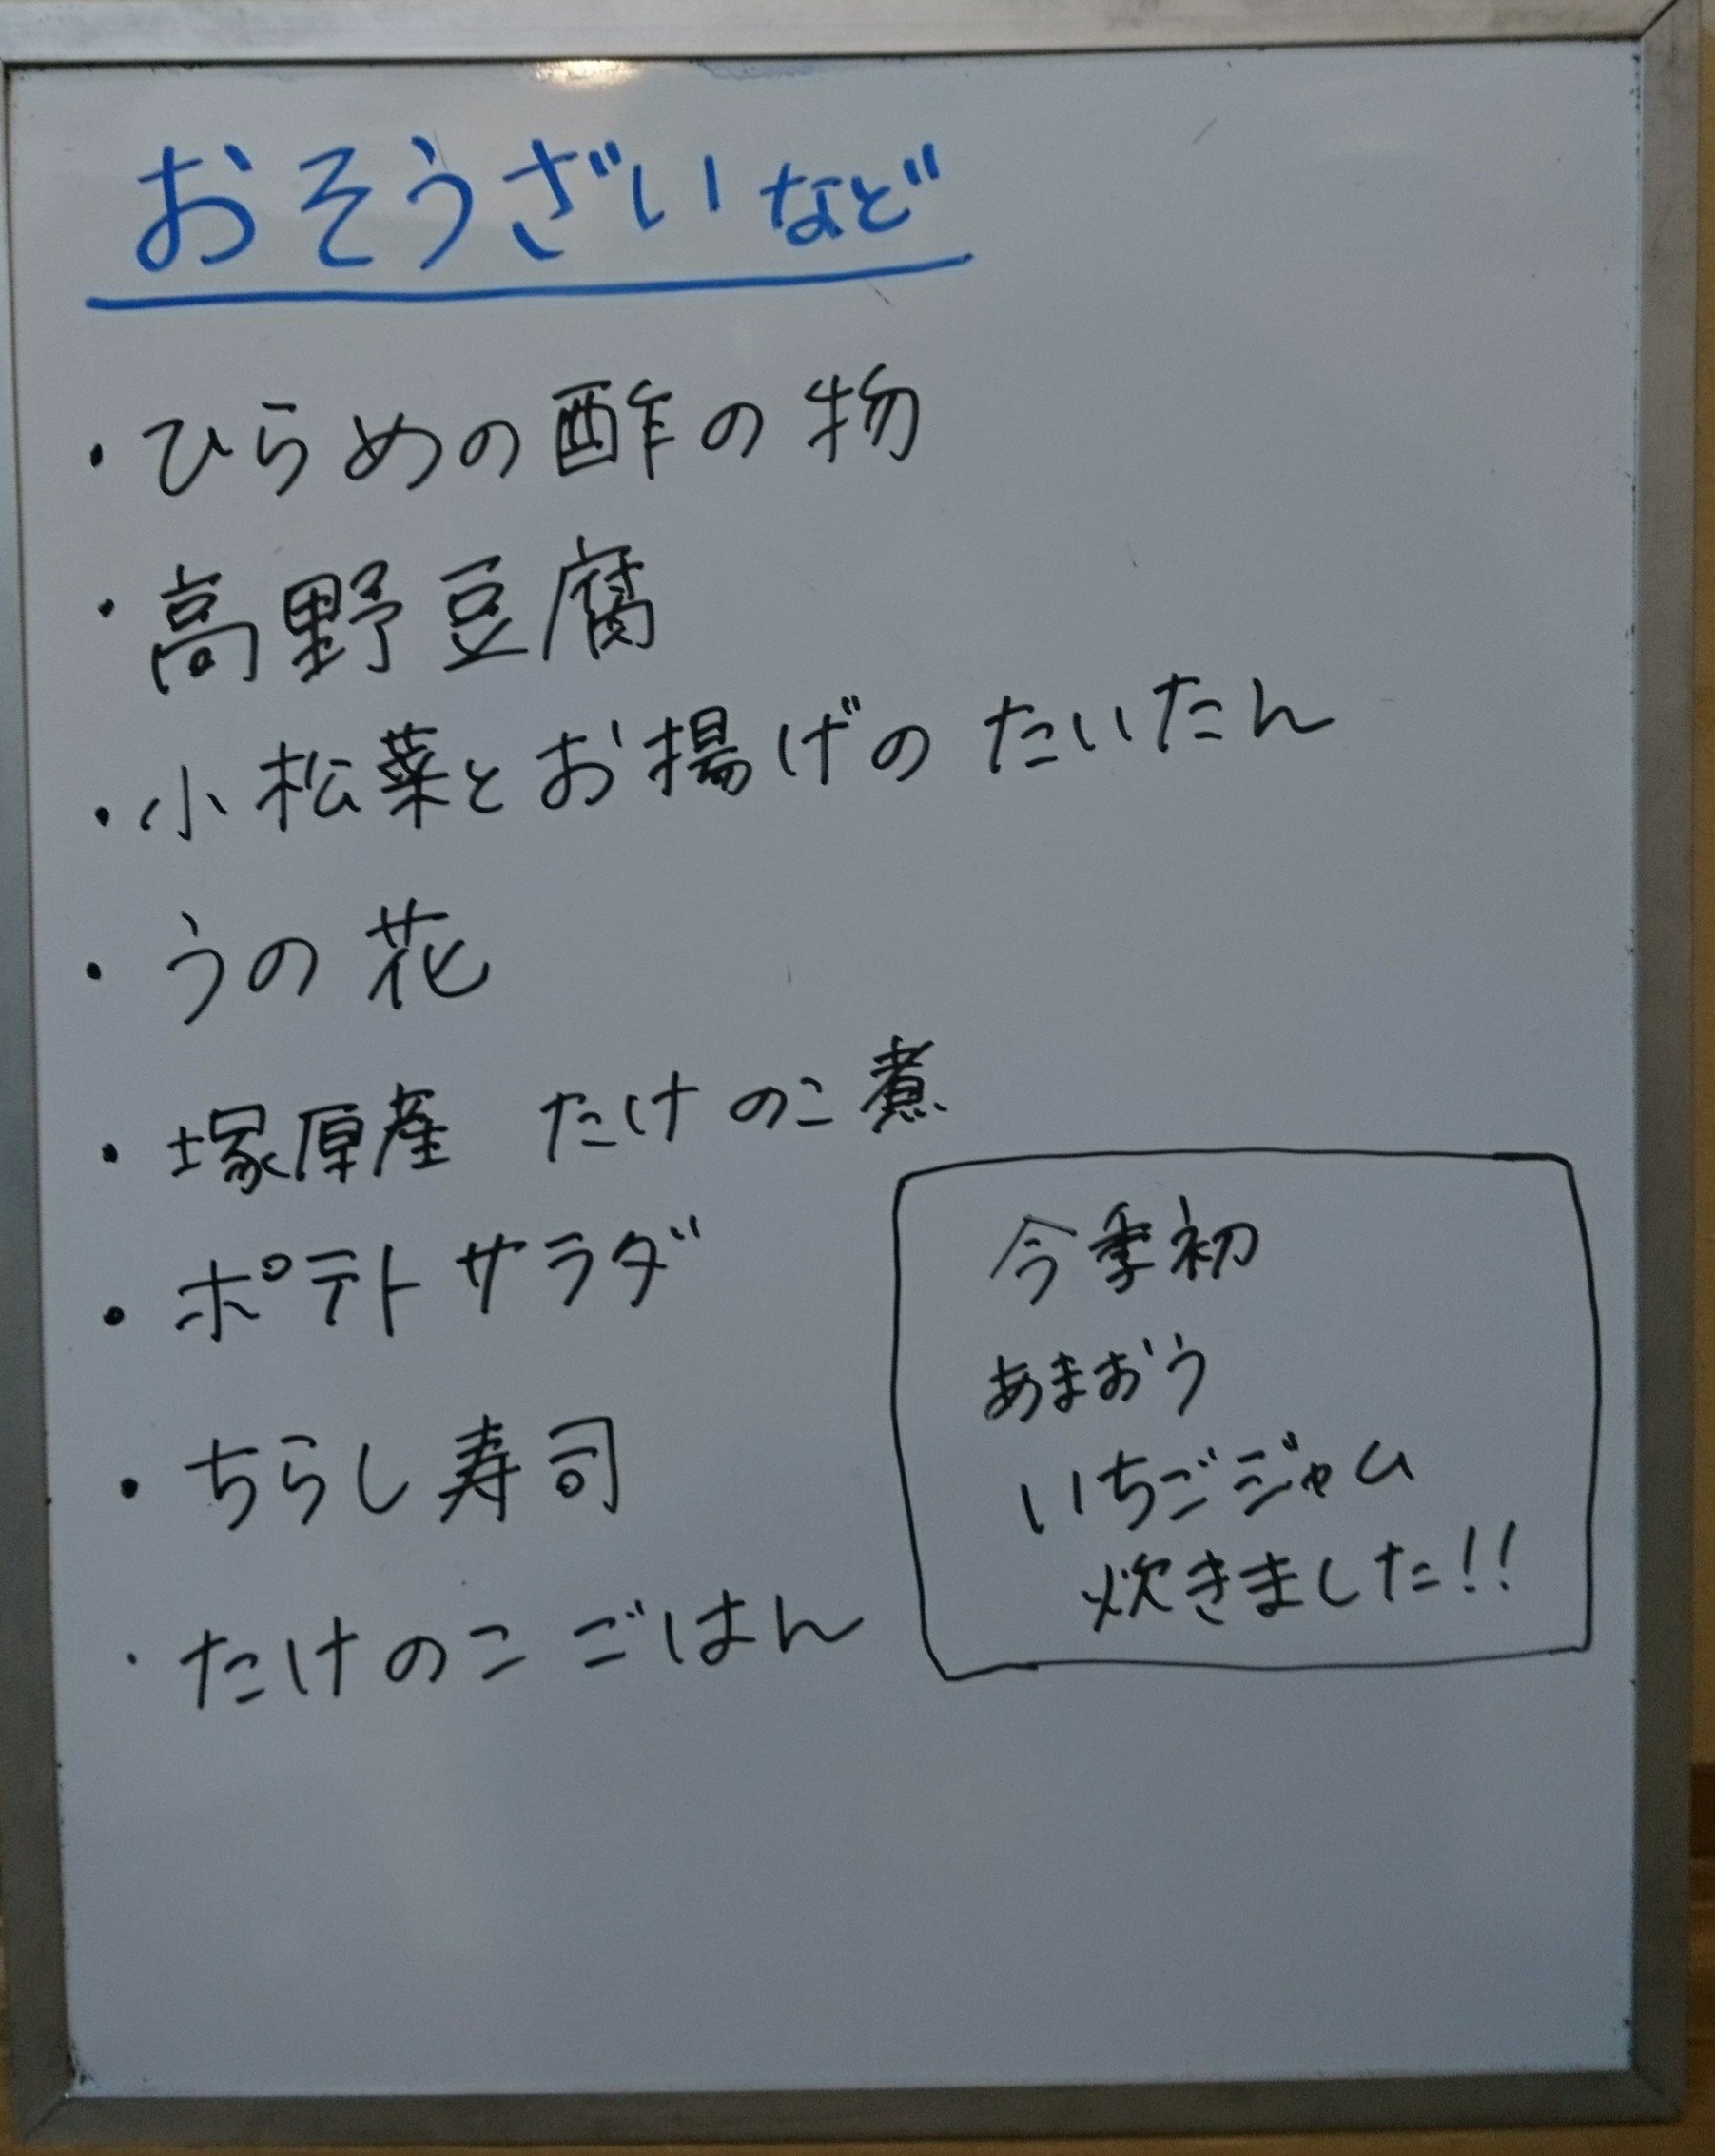 おそうざいなど
・ひらめの酢の物
・高野豆腐
・小松菜とお揚げのたいたん
・うの花
・塚原産 たけのこ煮
・ポテトサラダ
・ちらし寿司
・たけのこごはん
今季初
あまおう
いちごジャム
炊きました!!